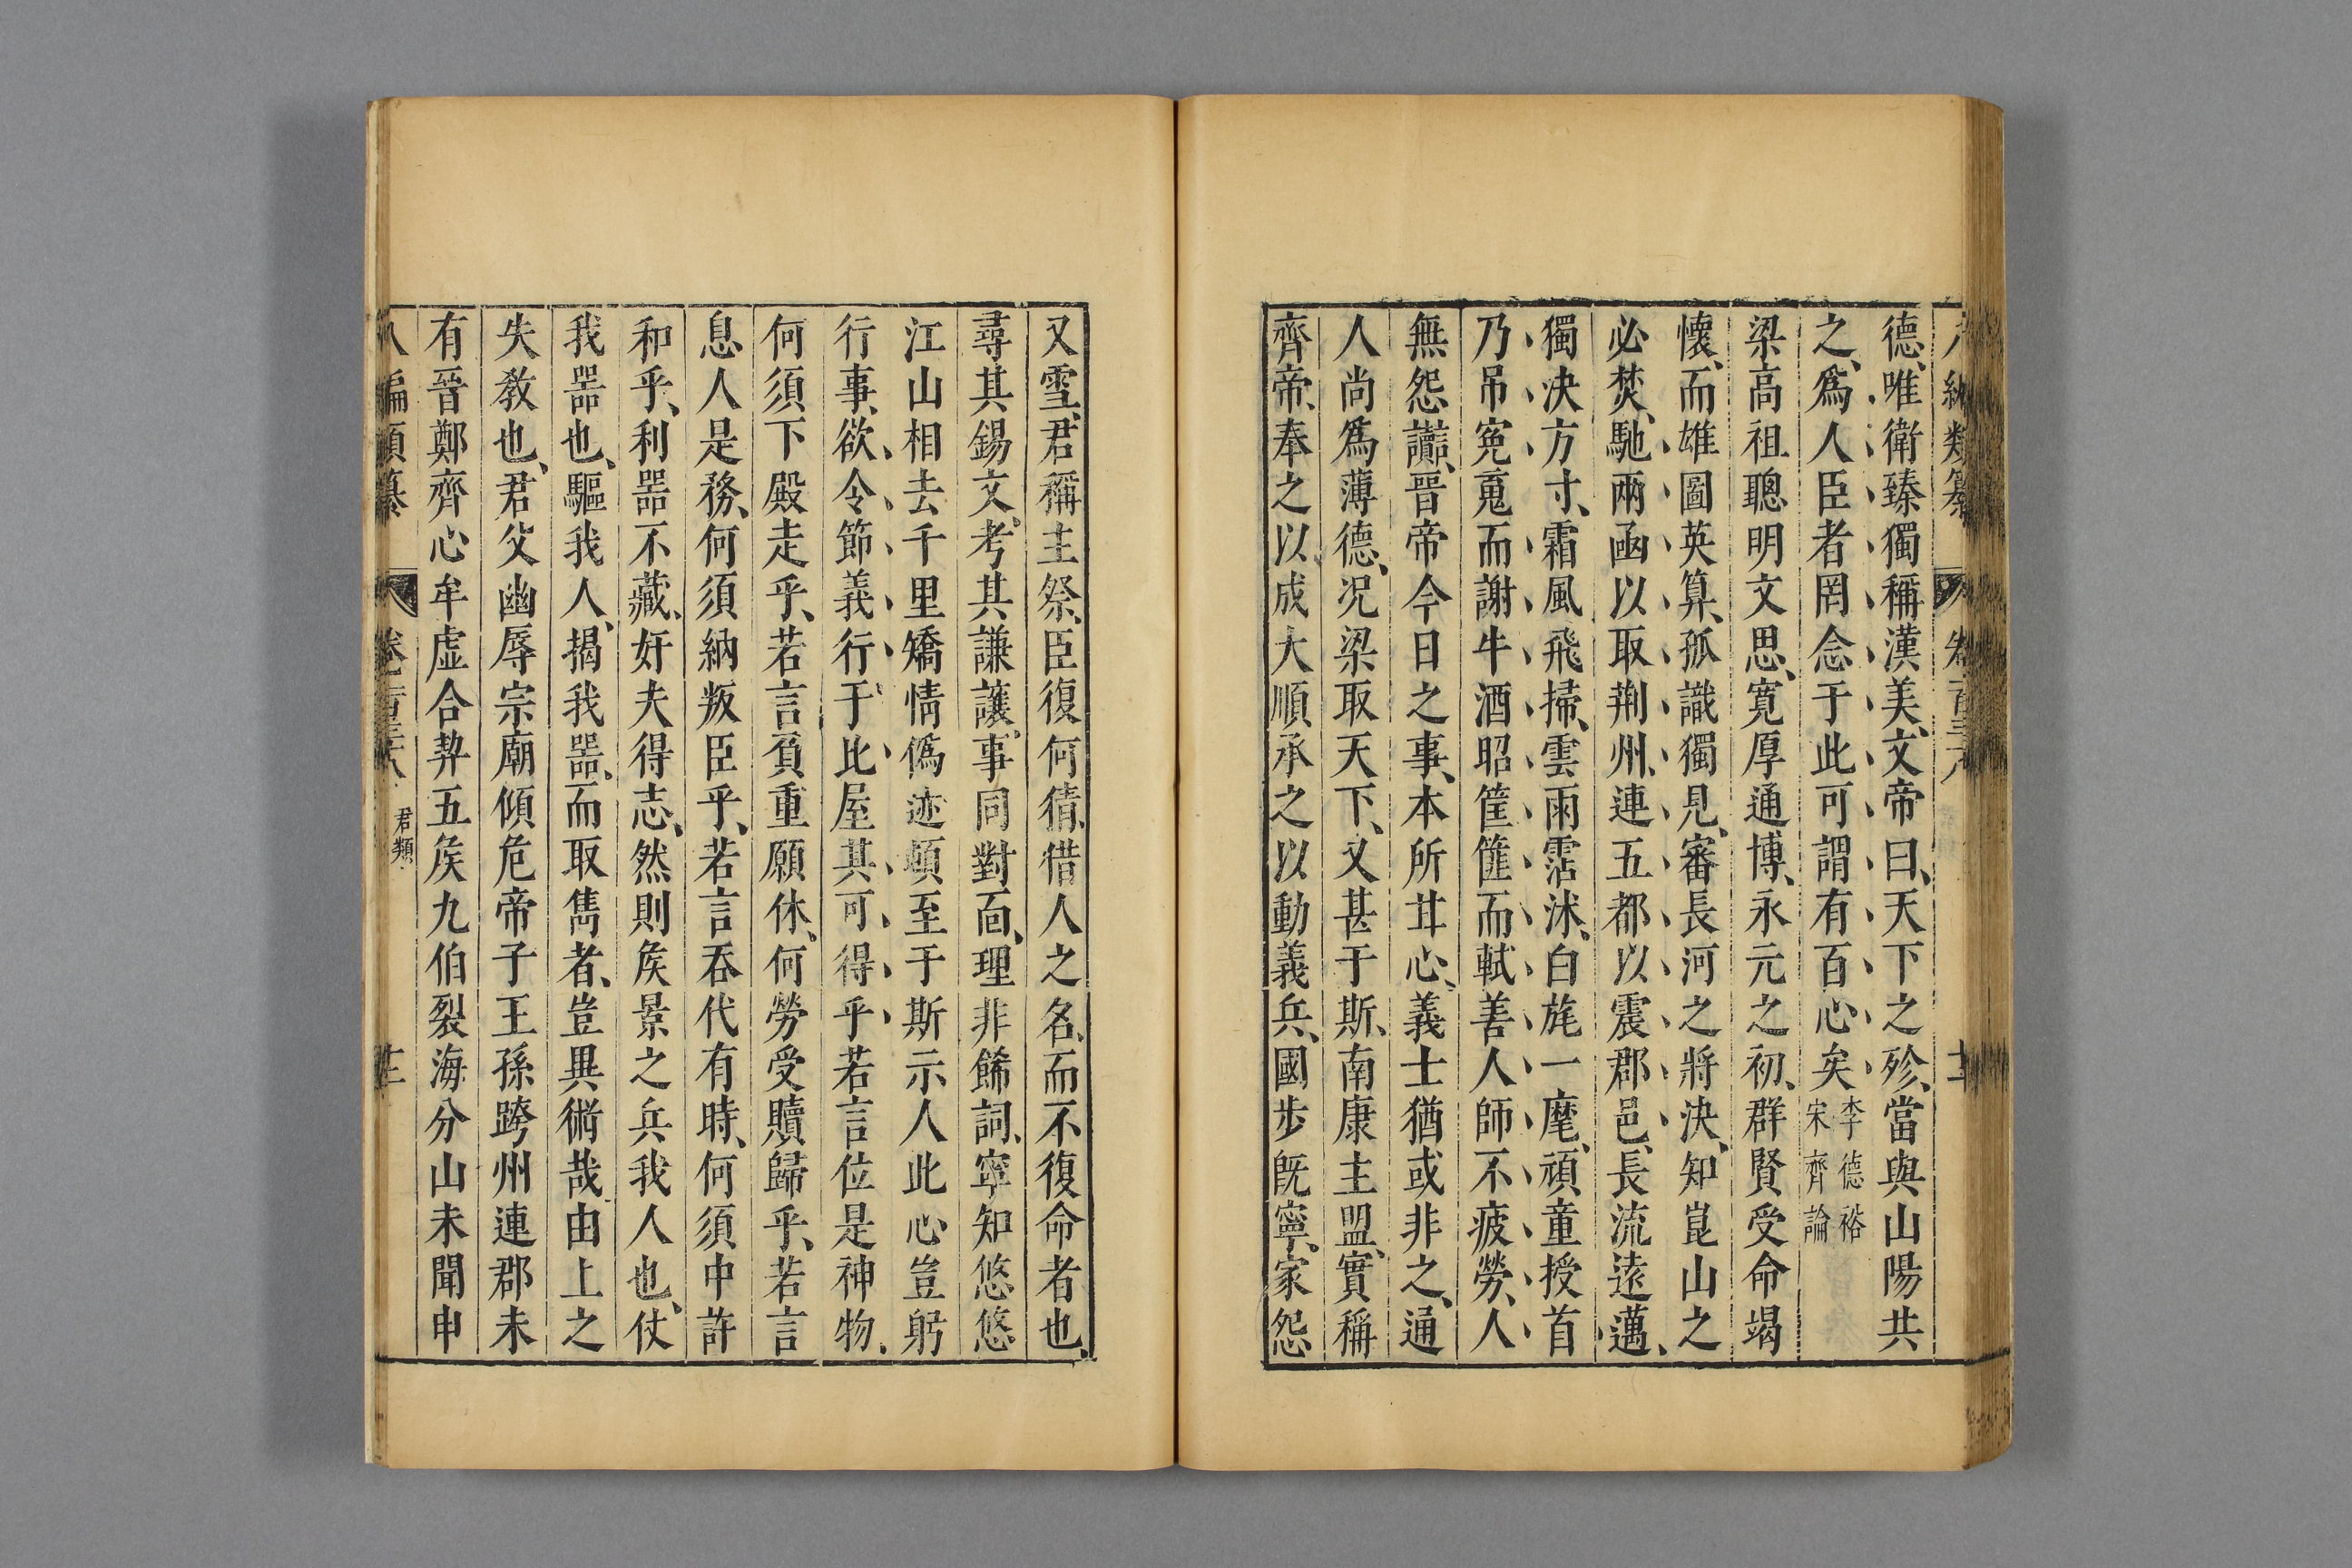 八編類纂 卷一百三十八 十二
德、唯衛臻獨稱漢美、文帝曰、天下之珍、當與山陽共
之、爲人臣者罔念于此可謂有百心矣 李德裕宋齊論
梁高祖聰明文思、寛厚通博、永元之初、群賢受命竭
懷、而雄圖英算、孤識獨見、審長河之將決、知崑山之
必焚、馳兩函以取荆州、連五都以震郡邑、長流遠邁、
獨決方寸、霜風飛掃、雲雨霑沐、白旄一麾、頑童授首
乃吊寃䰟而謝牛酒昭筐篚而軾善人師不疲勞、人
無怨讟、晉帝今日之事、本所甘心、義士猶或非之、通
人尚爲薄德、况梁取天下、又甚于斯、南康主盟、實稱
齊帝、奉之以成大順承之以動義兵、國步旣寧、家怨
又雪、君稱主祭、臣復何猜、借人之名、而不復命者也、
尋其錫文、考其謙讓、事同對面、理非餙詞、寧知悠悠
江山相去千里矯情僞迹頓至于斯示人此心豈躬
行事、欲令節義行于比屋其可得乎若言位是神物、
何須下殿走乎、若言負重願休、何勞受贖歸乎、若言
息人是務、何須納叛臣乎、若言吞代有時、何須中許
和乎、利噐不藏、奸夫得志、然則矦景之兵我人也、仗
我噐也、驅我人、揭我噐、而取雋者、豈異術哉、由上之
失敎也、君父幽辱宗廟傾危帝子王孫跨州連郡未
有晉鄭齊心牟虛合契五矦九伯裂海分山未聞申
八編類纂 卷一百三十八 君類 十二